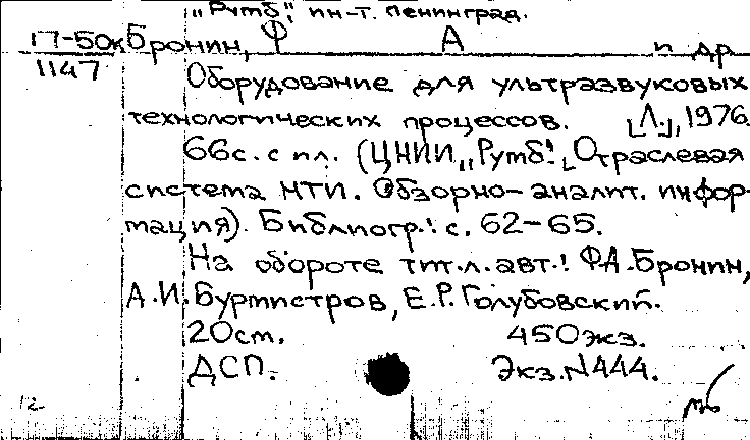 „Румб". ин-т. Ленинград.
17-50к Бронин, Ф А и др
1147
Оборудование для ультразвуковых
технологических процессов. [Л.], 1976.
66с. с ил. (ЦНИИ „Румб". Отраслевая
система НТИ. Обзорно-аналит. инфор-
мация). Библиогр.: с. 62-65.
На обороте тит.л. авт.: Ф.А.Бронин,
А.И.Бурмистров, Е.Р.Голубовский.
20см. 450экз.
ДСП. Экз.N444.
12